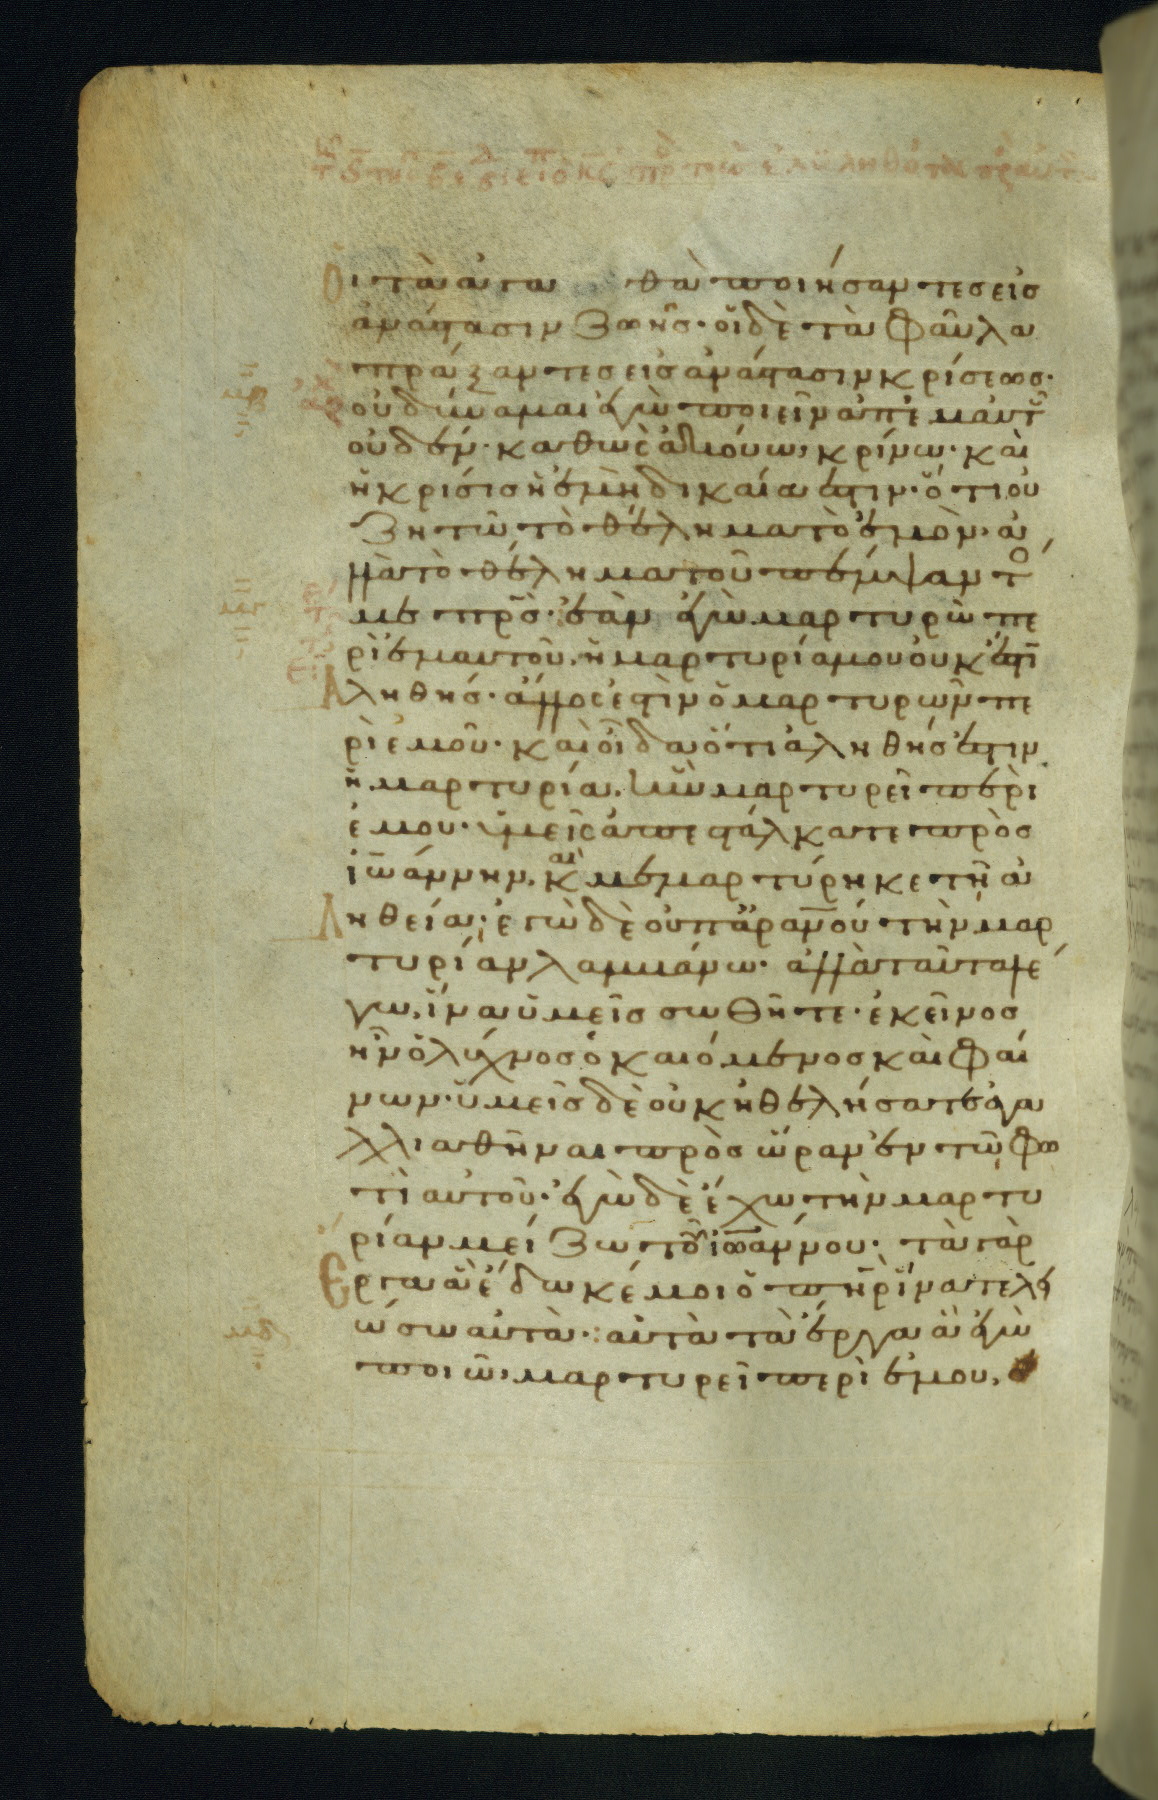 οἱ τὰ ἀγα θὰ ποιήσαντες εἰς
ἀνάστασιν ζωῆς· οἱ δὲ τὰ φαῦλα
πράξαντες εἰς ἀνάστασιν κρίσεως·
οὐ δύναμαι ἐγὼ ποιεῖν ἀπ' ἐμαυτοῦ
οὐδέν· καθὼς ἀκούω, κρίνω· καὶ
ἡ κρίσις ἡ ἐμὴ δικαία ἐστιν· ὅτι οὐ
ζητῶ τὸ θέλημα τὸ ἐμὸν, ἀλ
λὰ τὸ θέλημα τοῦ πέμψαντό
με πρς· ἐὰν ἐγὼ μαρτυρῶ πε
ρὶ ἐμαυτοῦ, ἡ μαρτυρία μου οὐκ ἔστι
Ἀληθής· ἄλλος ἐστὶν ὁ μαρτυρῶν πε
ρὶ ἐμοῦ· καὶ οἶδα ὅτι ἀληθής ἐστιν
ἡ μαρτυρία, ἣν μαρτυρεῖ περὶ
ἐμου· ὑμεῖς ἀπεστάλκατε πρὸς
ἰωάννην, καὶ μεμαρτύρηκε τῇ ἀ
Ληθεία· ἐγὼ δὲ οὐ παρὰ ἀνου τὴν μαρ
τυρίαν λαμβάνω· ἀλλὰ ταῦτα λέ
γω, ἵνα ὑμεῖς σωθῆτε· ἐκεῖνος
ἦν ὁ λύχνος ὁ καιόμενος καὶ φαί
νων· ὑμεῖς δὲ οὐκ ἠθελήσατε ἀγα
λλιαθῆναι πρὸς ὥραν ἐν τῷ φω
τὶ αὐτοῦ· ἐγὼ δὲ ἔχω τὴν μαρτυ
ρίαν μείζω τοῦ ἰωάννου· τὰ γὰρ
Εργα ἃ ἔδωκέ μοι ὁ πηρ ἵνα τελει
ώσω αὐτὰ· αὐτὰ τὰ ἔργα ἃ ἐγὼ
ποιῶ, μαρτυρεῖ περὶ ἐμου,